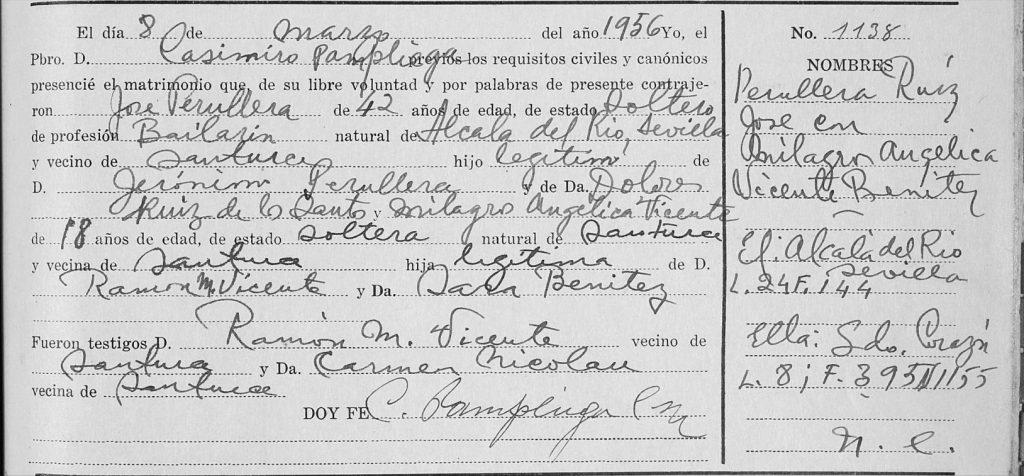 El día 8 de Marzo del año 1956 Yo, el
Pbro. D. Casimiro Pampliega previos los requisitos civiles y canónicos
presencié el matrimonio que, de su libre voluntad y por palabras de presente contraje-
ron Jose Perullera de 42 años de edad, de estado Soltero
de profesión Bailarin natural de Alcala del Rio, Sevilla
y vecino de Santurce hijo legitimo de
D. Jerónimo Perullera y de Da. Dolores
Ruiz de los Santos y Milagro Angélica Vicente
de 18 años de edad, de estado soltera natural de Santurce
y vecina de Santurce hija legitima de D.
Ramon M. Vicente y Da. Sara Benitez
Fueron testigos D. Ramón M. Vicente vecino de
Santurce y Da. Carmen Nicolau
vecina de Santurce
DOY FE C. Pampliega
No. 1138
NOMBRES
Perullera Ruíz
Jose con
Milagro Angélica
Vicente Benitez
El: Alcalá del Rio
Sevilla
L. 24 F. 144
Ella: Sdo. Corazón
L. 8; F. 395
N. C.